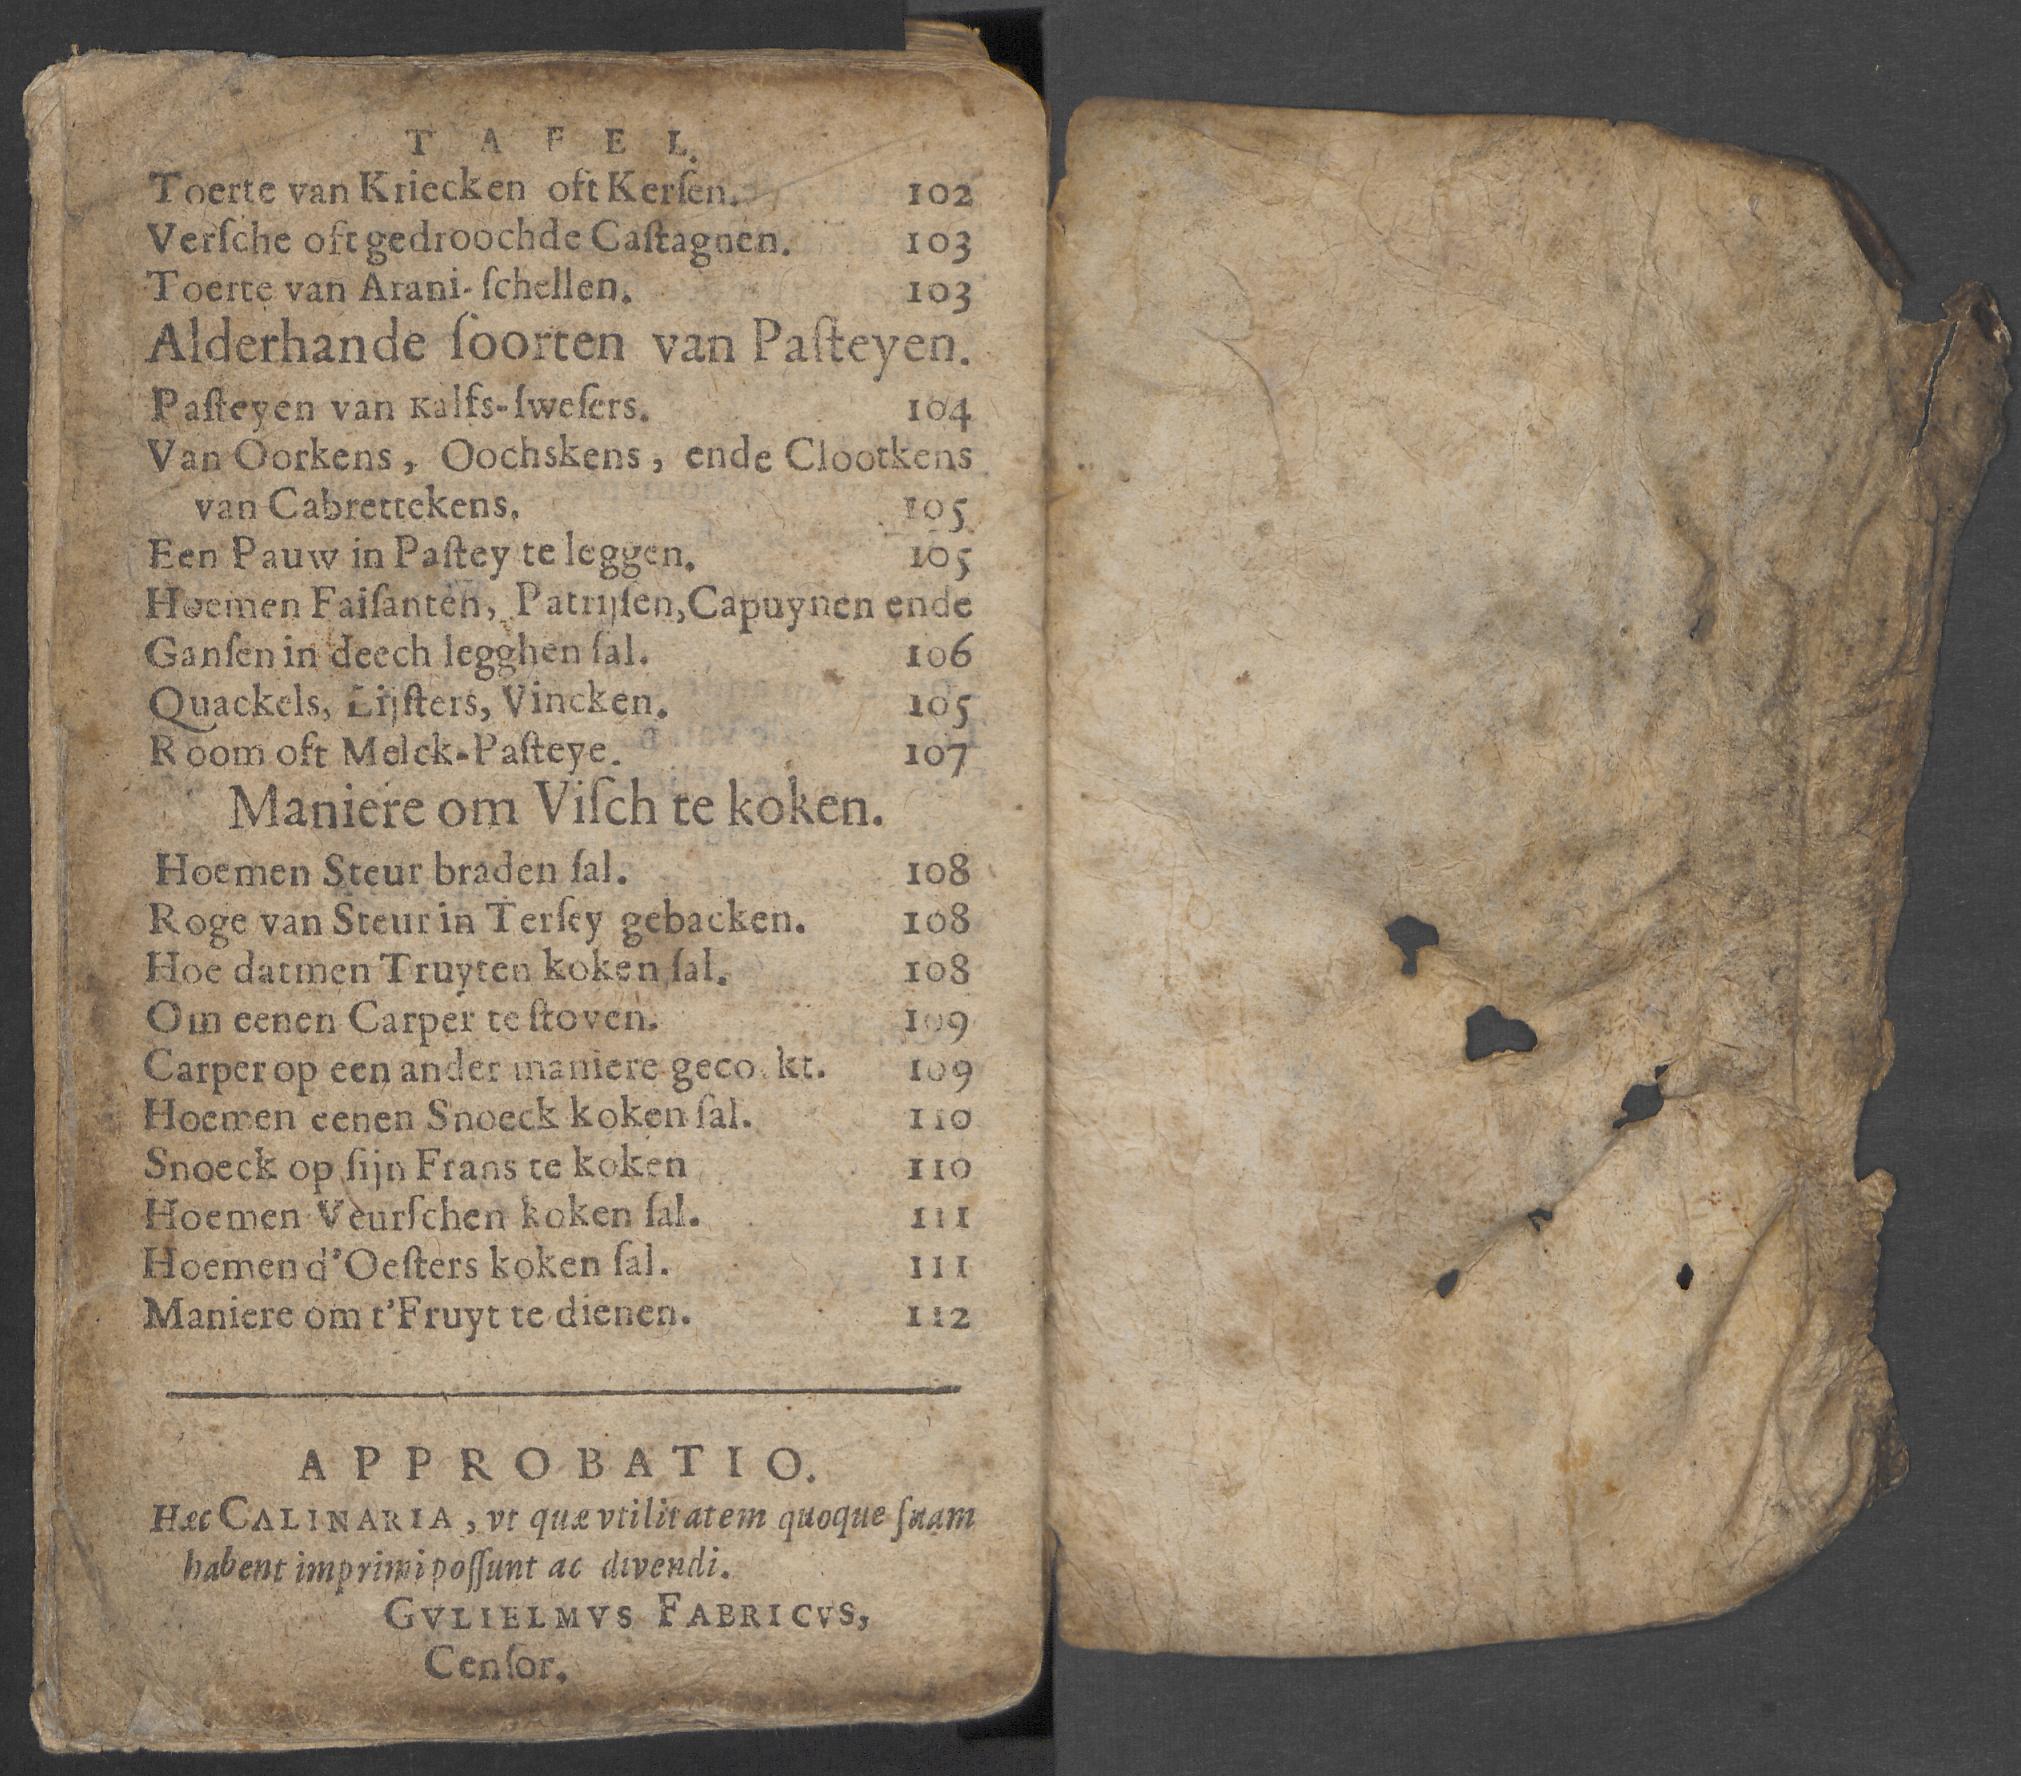 TAFEL.
Toerte van Kriecken oft Kerſen. 102
Verſche oft gedroochde Caſtagnen. 103
Toerte van Arani-ſchellen. 103
Alderhande ſoorten van Paſteyen.
Paſteyen van Kalfs-ſweſers. 104
Van Oorkens, Oochskens, ende Clootkens
van Cabrettekens. 105
Een Pauw in Paſtey te leggen. 105
Hoemen Faiſanten, Patrijſen, Capuynen ende
Ganſen in deech legghen ſal. 106
Quackels, Lijſters, Vincken. 105
Room oft Melck-Paſteye. 107
Maniere om Viſch te koken.
Hoemen Steur braden ſal. 108
Roge van Steur in Terſey gebacken. 108
Hoe datmen Truyten koken ſal. 108
Om eenen Carper te ſtoven. 109
Carper op een ander maniere geco kt. 109
Hoemen eenen Snoeck koken ſal. 110
Snoeck op ſijn Frans te koken 110
Hoemen Veurſchen koken ſal. 111
Hoemen d'Oeſters koken ſal. 111
Maniere om t'Fruyt te dienen. 112
APPROBATIO.
Hæc CALINARIA, vt quæ vtilitatem quoque ſuam
habent imprimi poſſunt ac divendi.
GVLIELMVS FABRICVS,
Cenſor.